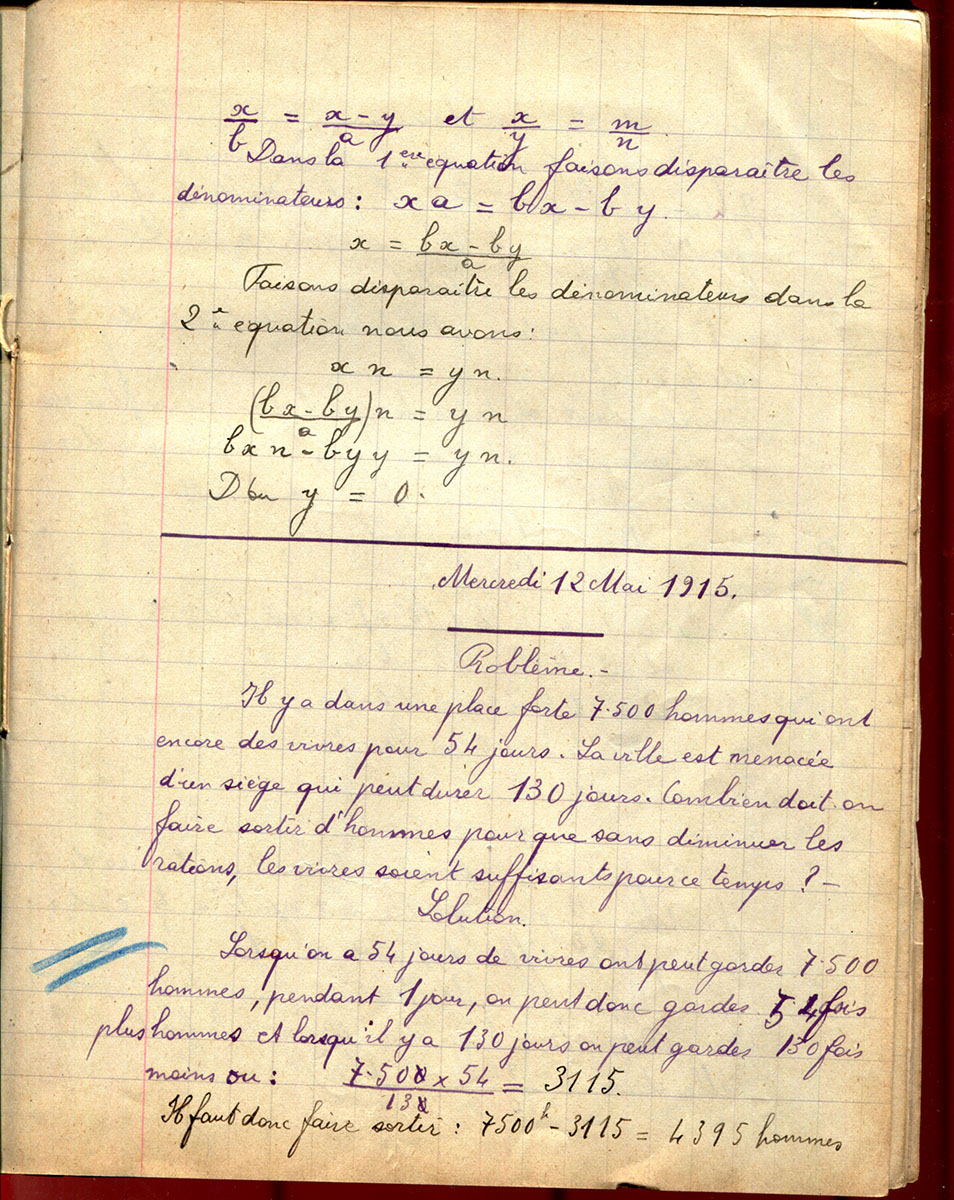 x/b = x-y/a et x/y = m/n
Dans la 1ère equation faisons disparaître les
dénominateurs : xa = bx - by.
x = bx - by/a
Faisons disparaitre les dénominateurs dans la
2e equation nous avons :
xn = yn.
(bx - by/a)n = yn
bxn - byy = yn.
D'ou y = 0.
Mercredi 12 Mai 1915.
Problème.-
Il y a dans une place forte 7.500 hommes qui ont
encore des vivres pour 54 jours. La ville est menacée
d'un siège qui peut durer 130 jours. Combien doit-on
faire sortir d'hommes pour que sans diminuer les
rations, les vivres soient suffisants pour ce temps ? -
Solution.
Lorsqu'on a 54 jours de vivres ont peut garder 7.500
hommes, pendant 1 jour, on peut donc garder 54 fois
plus hommes et lorsqu'il y a 130 jours on peut garder 130 fois
moins ou : 7.500 x 54/130 = 3115.
Il faut donc faire sortir : 7500h - 3115 = 4395 hommes